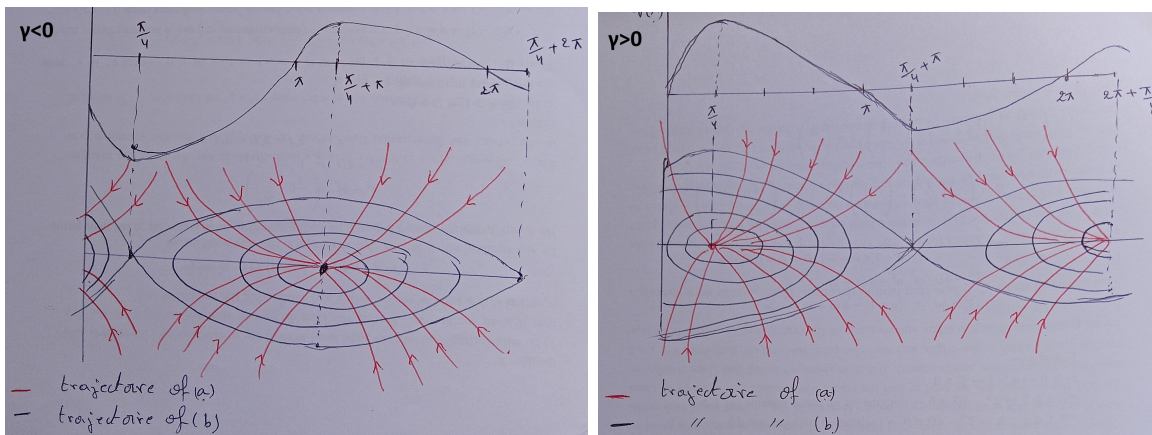 γ<0
π/4
π
π/4 + π
2π
π/4 + 2π
— trajectoire of (a)
— trajectoire of (b)
γ>0
π/4
π
π/4 + π
2π
2π + π/4
— trajectoire of (a)
— " " (b)